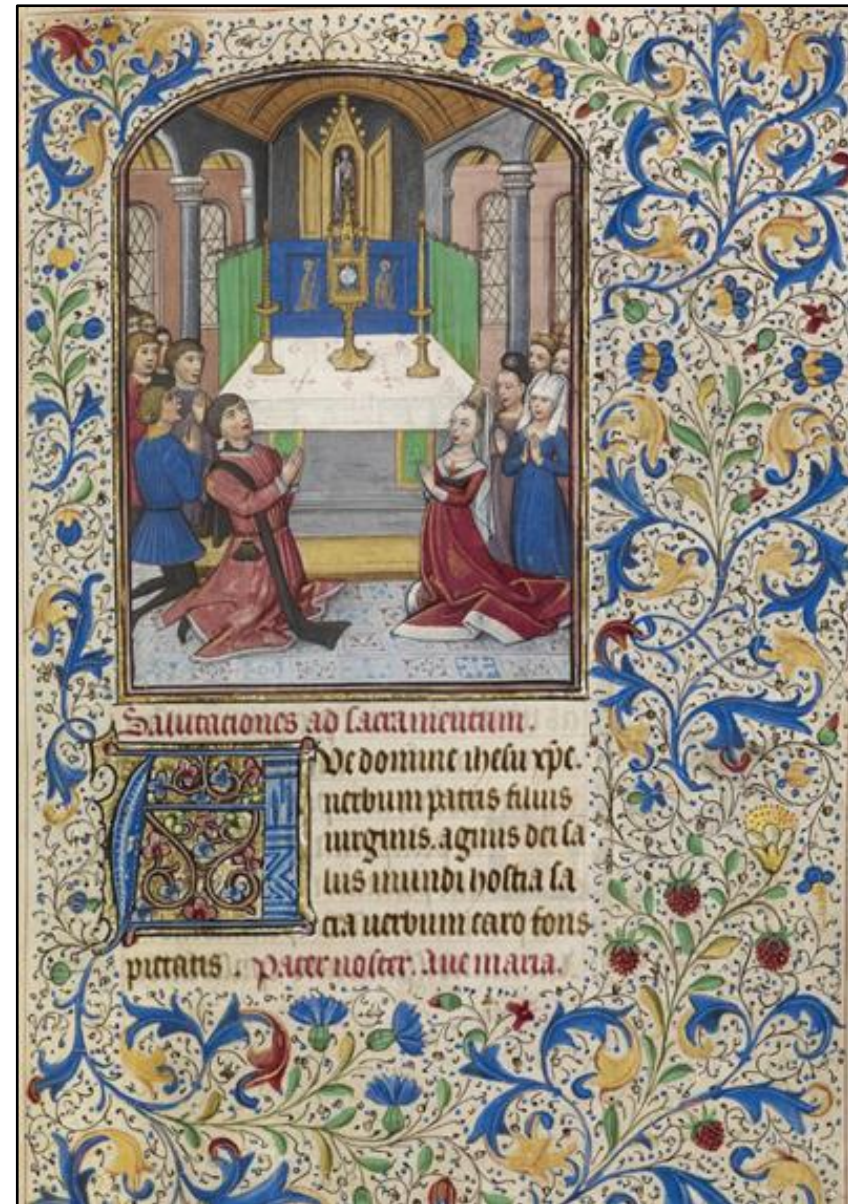 Salutaciones ad sacramentum.
Ave domine ihesu xp̄e.
uerbum patris filius
uirginis. agnus dei sa
lus mundi hostia sa
cra uerbum caro fons
pietatis. Pater noster. Aue maria.